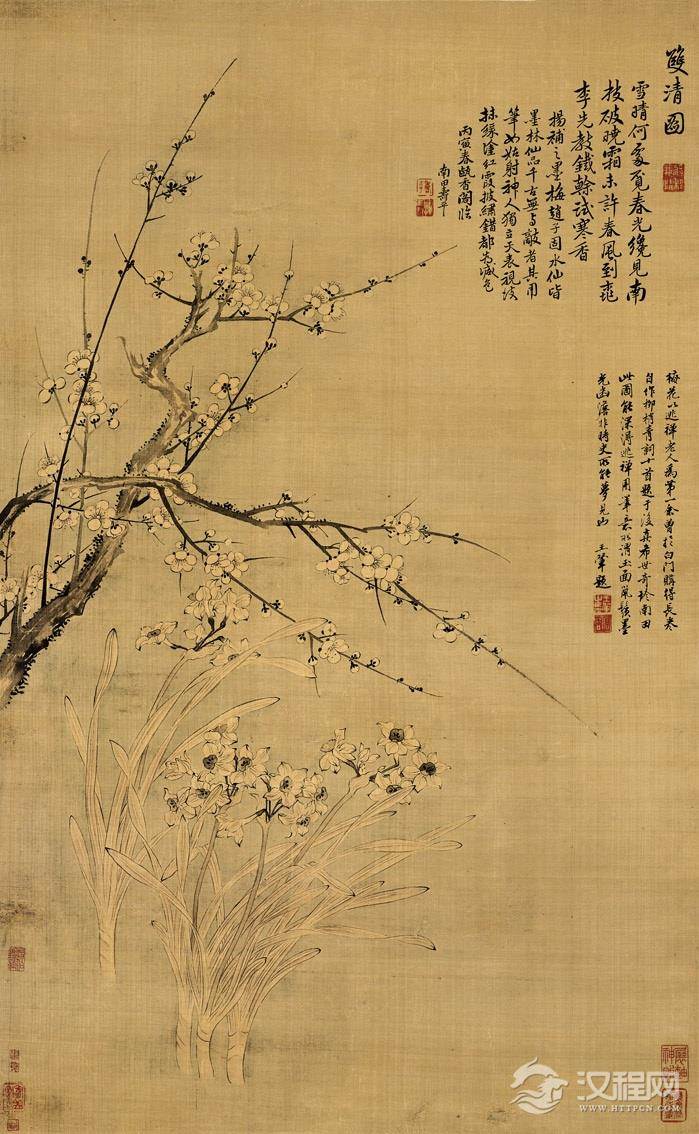 雙清圖
雪晴何處覓春光纔見南
枝破曉霜未許春風到桃
李先教鐵榦試寒香
楊補之墨梅趙子固水仙皆
墨林仙品千古無與敵者其用
筆如姑射神人獨立天表視彼
抹綠塗紅霞披繡錯都為減色
丙寅春甌香閣臨
南田壽平
梅花以逃禪老人為第一余曾於白門購得長卷
自作柳梢青詞十首題于後真希世奇珍南田
此圖能深得逃禪用筆意水浦玉面風鬟墨
光幽澹非時史所能夢見也
王翬題
汉程网
WWW.HTTPCN.COM